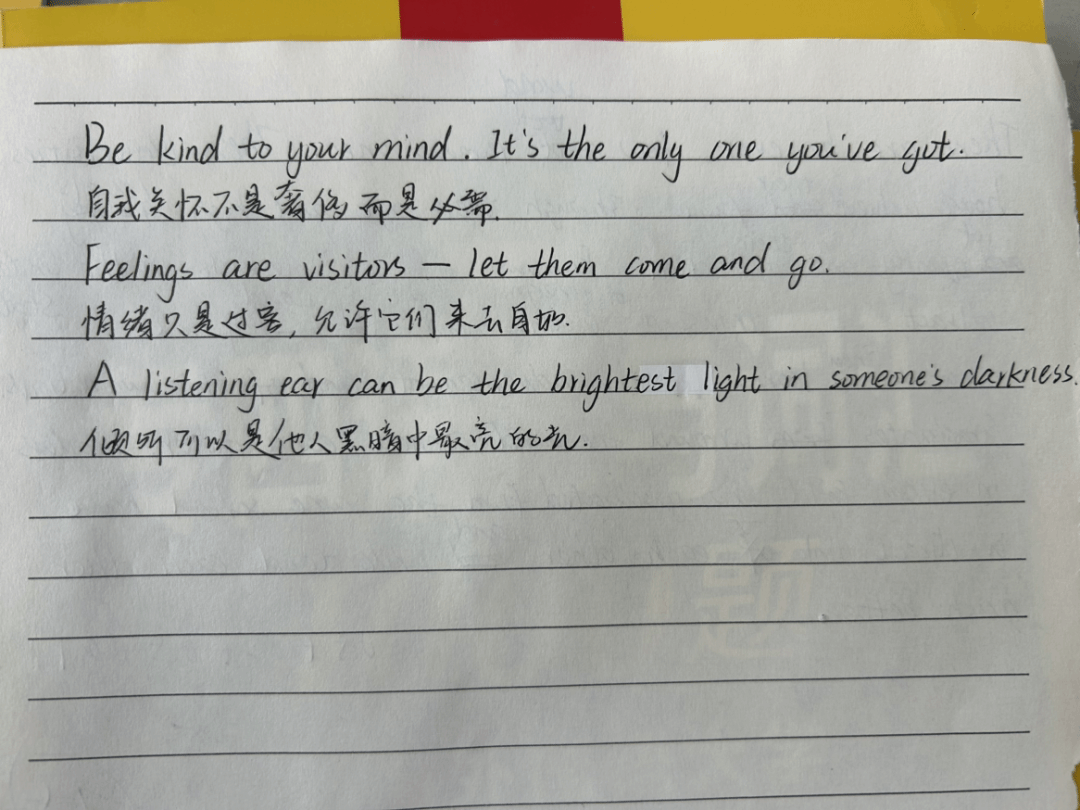 Be kind to your mind. It's the only one you've got.
自我关怀不是奢侈而是必需.
Feelings are visitors — let them come and go.
情绪只是过客, 允许它们来去自如.
A listening ear can be the brightest light in someone's darkness.
倾听可以是他人黑暗中最亮的光.